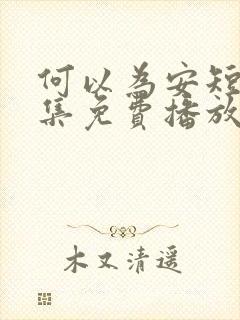 何以為安短
集免費播放
木又清遥